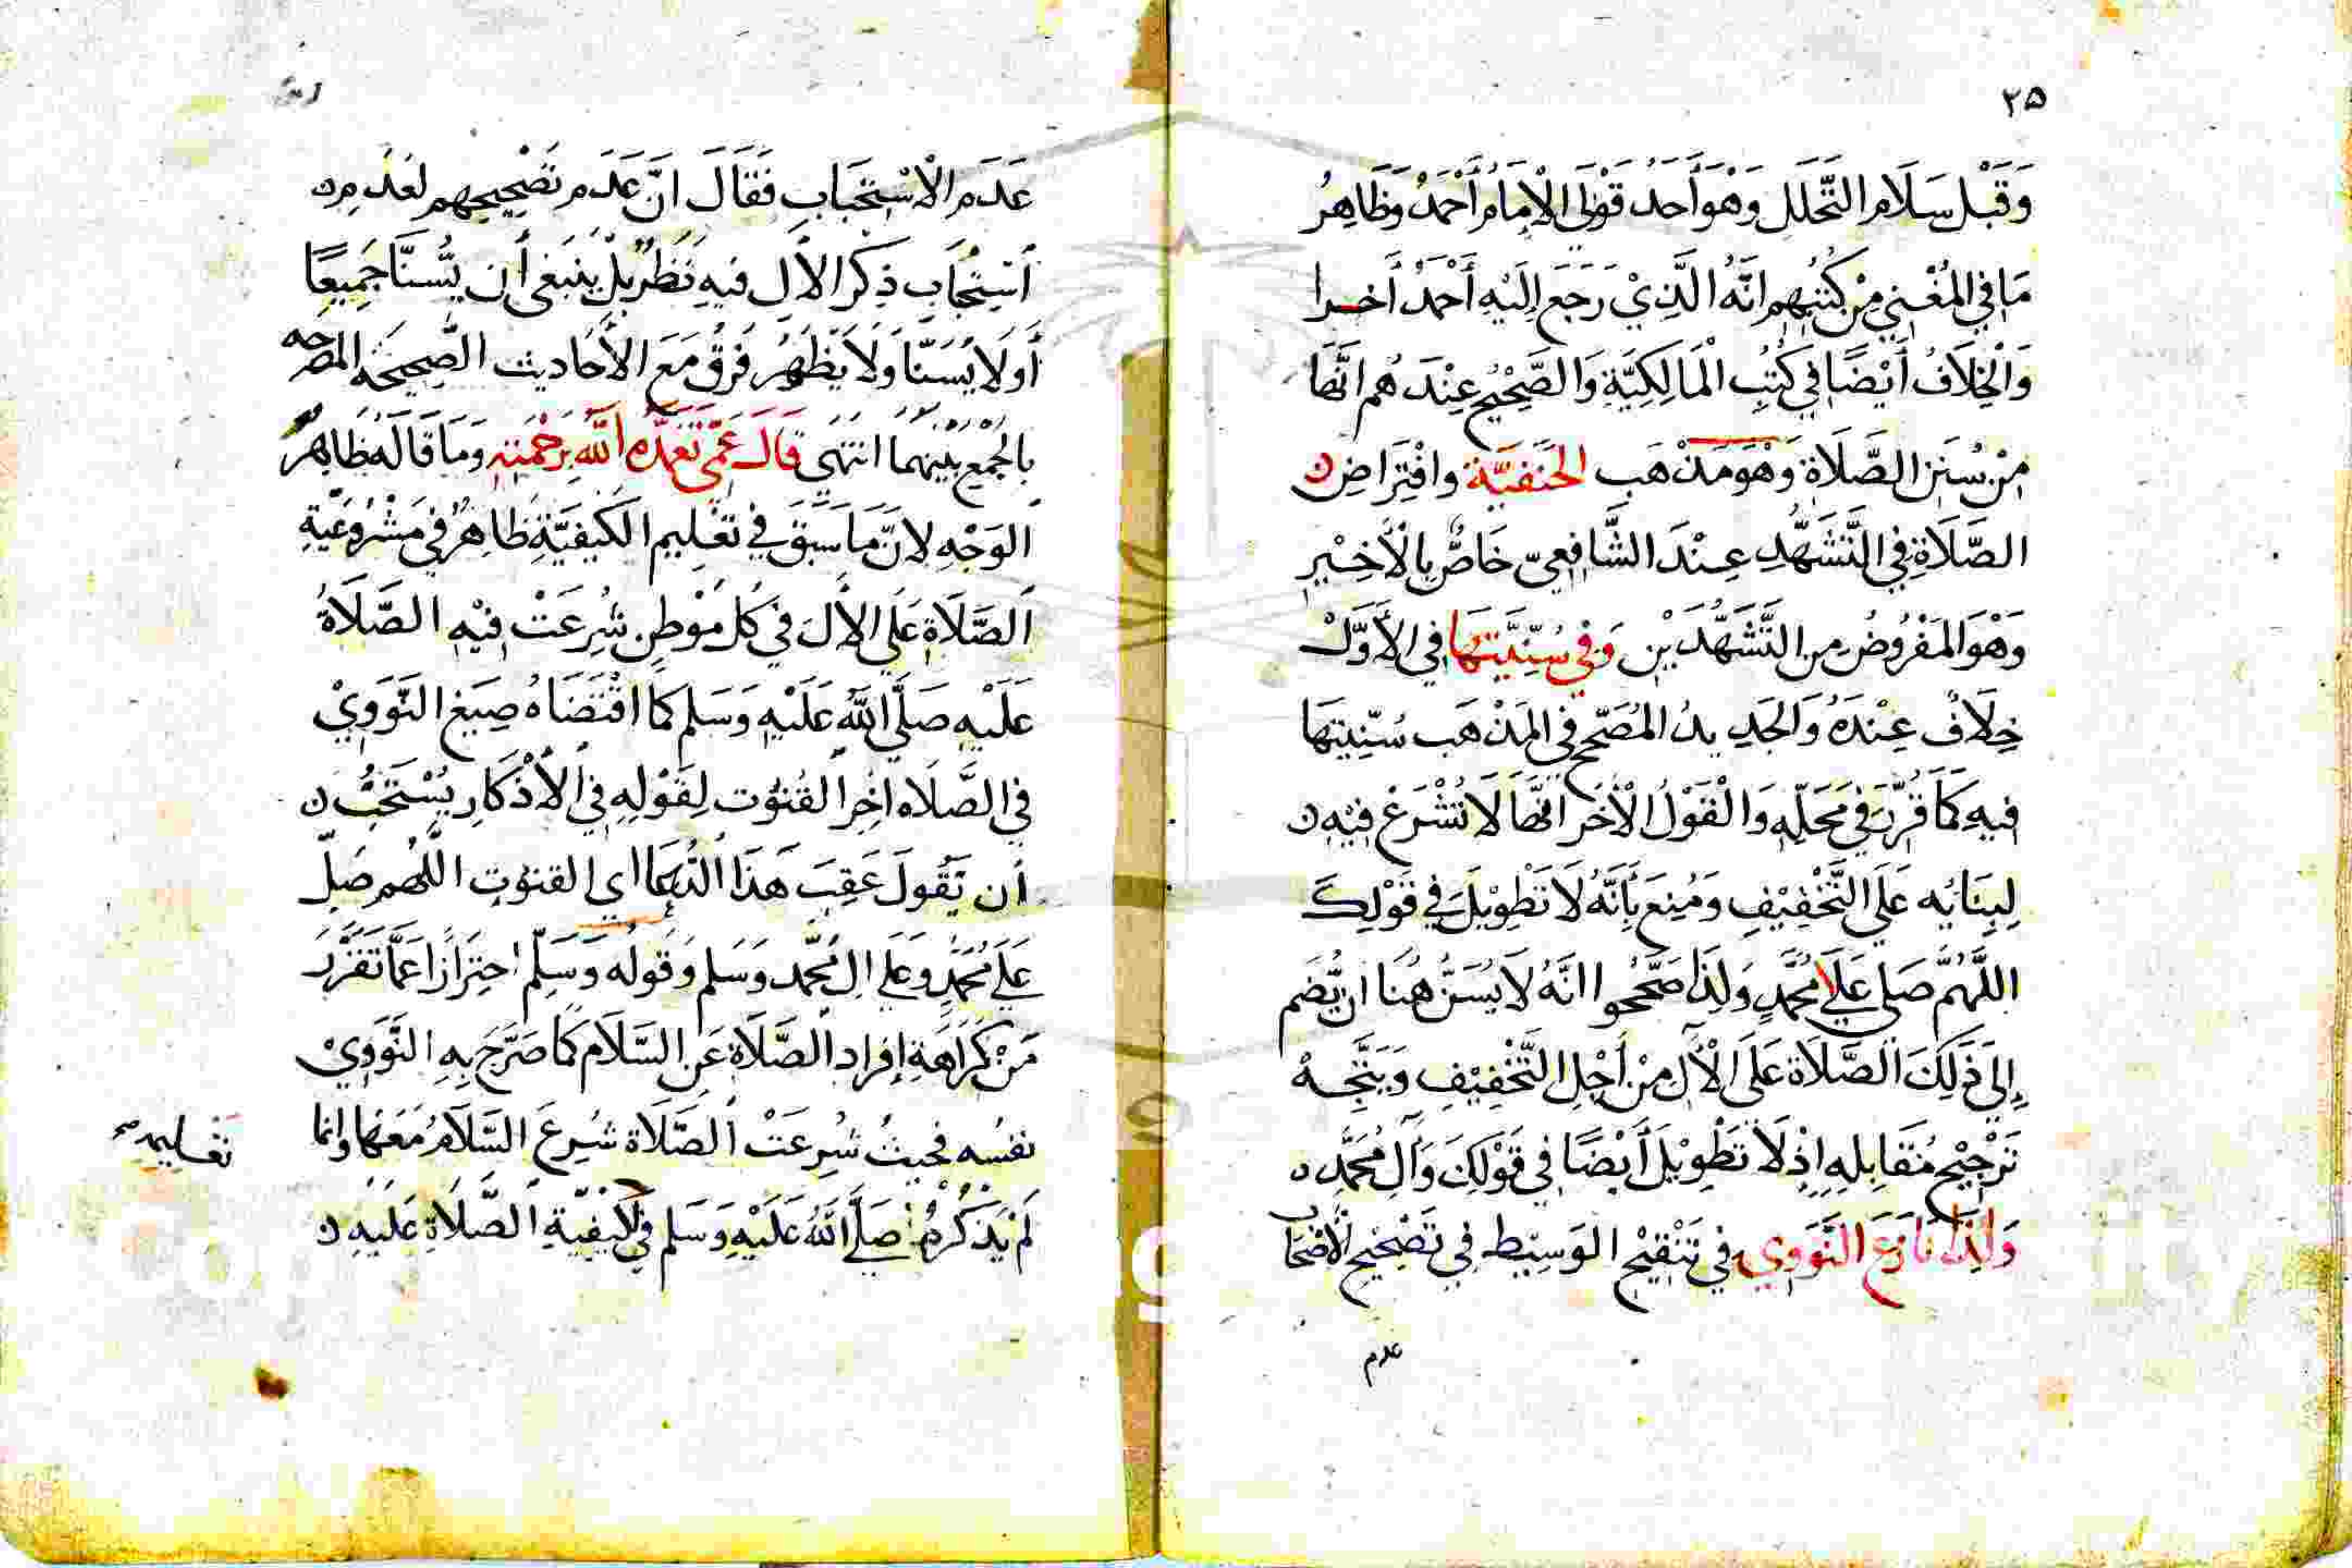 ٢٥
وَقَبْلَ سَلَامِ التَّحَلُّلِ وَهْوَ أَحَدُ قَوْلَيِ الْإِمَامِ أَحْمَدَ وَظَاهِرُ
مَا فِي الْمُغْنِي مِنْ كُتُبِهِم انَّهُ الَّذِيْ رَجَعَ إِلَيْهِ أَحْمَدْ أَخرا
وَالْخِلَافُ أَيْضًا فِي كُتُبِ الْمَالِكِيَّةِ وَالصَّحِيْحُ عِنْدَهُم انَّهَا
مِنْ سُنَنِ الصَّلَاةِ وَهْوَ مَذْهَب الحَنَفيَّة وافْتِرَاضِ
الصَّلَاةِ فِي التَّشَهُّدِ عِنْدَ الشَّافِعِيّ خَاصٌّ بِالْأَخِيْرِ
وَهْوَ المَفْرُوضُ مِن التَّشَهُّدَيْنِ وَفي سُنِّيَّتِهَا فِي الأَوَّلْ
خِلَافٌ عِنْدَهُ وَالجَدِيدُ المُصَحَّح فِي المَذْهَب سُنِّيتِهَا
فيهِ كَمَا قُرِّرَ فِي مَحَلِّهِ وَالْقَوْلُ الْأخَر انَّهَا لَا تُشْرَعْ فِيْهِ
لِبِنَائِه عَلَى التَّخْفِيْفِ وَمُنِعَ بِأَنَّهُ لَا تَطْوِيْلَ فِي قَوْلِكَ
اللَّهُمَّ صَلى عَلَى مُحَمَّدٍ وَلِذَا صَحَّحُوا انَّهُ لَا يُسَنُّ هُنَا ان يُّضَم
إِلَى ذَلِكَ الصَّلَاة عَلَى الْآلِ مِنْ أَجْلِ التَّخْفِيْفِ وَيَتَّجِهْ
تَرْجِيْح مُقَابِلِهِ إِذْ لَا تَطْوِيْلَ أَيْضًا فِي قَوْلِكَ وَآلِ مُحَمَّدٍ
وَلِذَا نَازَعَ النَّوَوِي فِي تَنْقِيْحِ الوَسِيْطِ فِي تَصْحِيْحِ الْأَصْحَاب
عدم
عَدَم الْاسْتِحْبَابِ فَقَالَ انَّ عَدَم تَصْحِيحِهِم لعَدَمِ
اسْتِحْبَابِ ذِكْرِ الأَلِ فيهِ نَظَرٌ بَلْ يَنْبَغِي أَن يُّسَنَّا جَمِيعًا
أَو لَا يُسَنَّا وَلَا يَظْهَرُ فَرْقٌ مَعَ الأَحَادِيث الصَّحِيحَة المصرحه
بِالجَمْعِ بَيْنَهُمَا انتَهَى قَالَ عَمِّي تَغَمَّدَه اللَّه بِرَحْمَتِهِ وَمَا قَالَهُ ظَاهِرُ
الوَجْهِ لِانَّ مَا سَبَقَ فِي تَعْلِيم الكَيفيَّةِ ظَاهِرٌ فِي مَشْرُوعَيةِ
الصَّلَاةِ عَلَى الأَلَ فِي كُلِّ مَوْطِنٍ شُرِعَتْ فِيْهِ الصَّلَاةُ
عَلَيْهِ صَلَّى اللَّه عَلَيْهِ وَسَلم كَمَا اقْتَضَاهُ صِيَغ النَّوَوِيْ
في الصَّلَاه اخِر القُنُوْت لِقَوْلِهِ فِي الْأَذْكَارِ يُسْتَحَبُّ
أن يَّقُولَ عَقِبَ هَذَا الدُّعَا اي القنوت اللَّهُم صَلِّ
عَلى مُحَمَّدٍ وَعَلى الِ مُحَمَّد وَسَلم وَقوله وَسَلِّم احتِرَازًا عَمَّا تَقَرَّرَ
مِنْ كَرَاهَةِ إِفراد الصَّلَاة عَنِ السَّلَام كَمَا صَرَّحَ بِهِ النَّوَوِيْ
نفسُه فحَيثُ شُرِعَتْ الصَّلَاة شُرِعَ السَّلَامُ مَعَهَا وانما
تَعْليمهم
لَمْ يَذْكُرْهُ صَلَّى اللَّهُ عَلَيْهِ وَسَلم في كَيْفِيَّةِ الصَّلَاةِ عَلَيْهِ